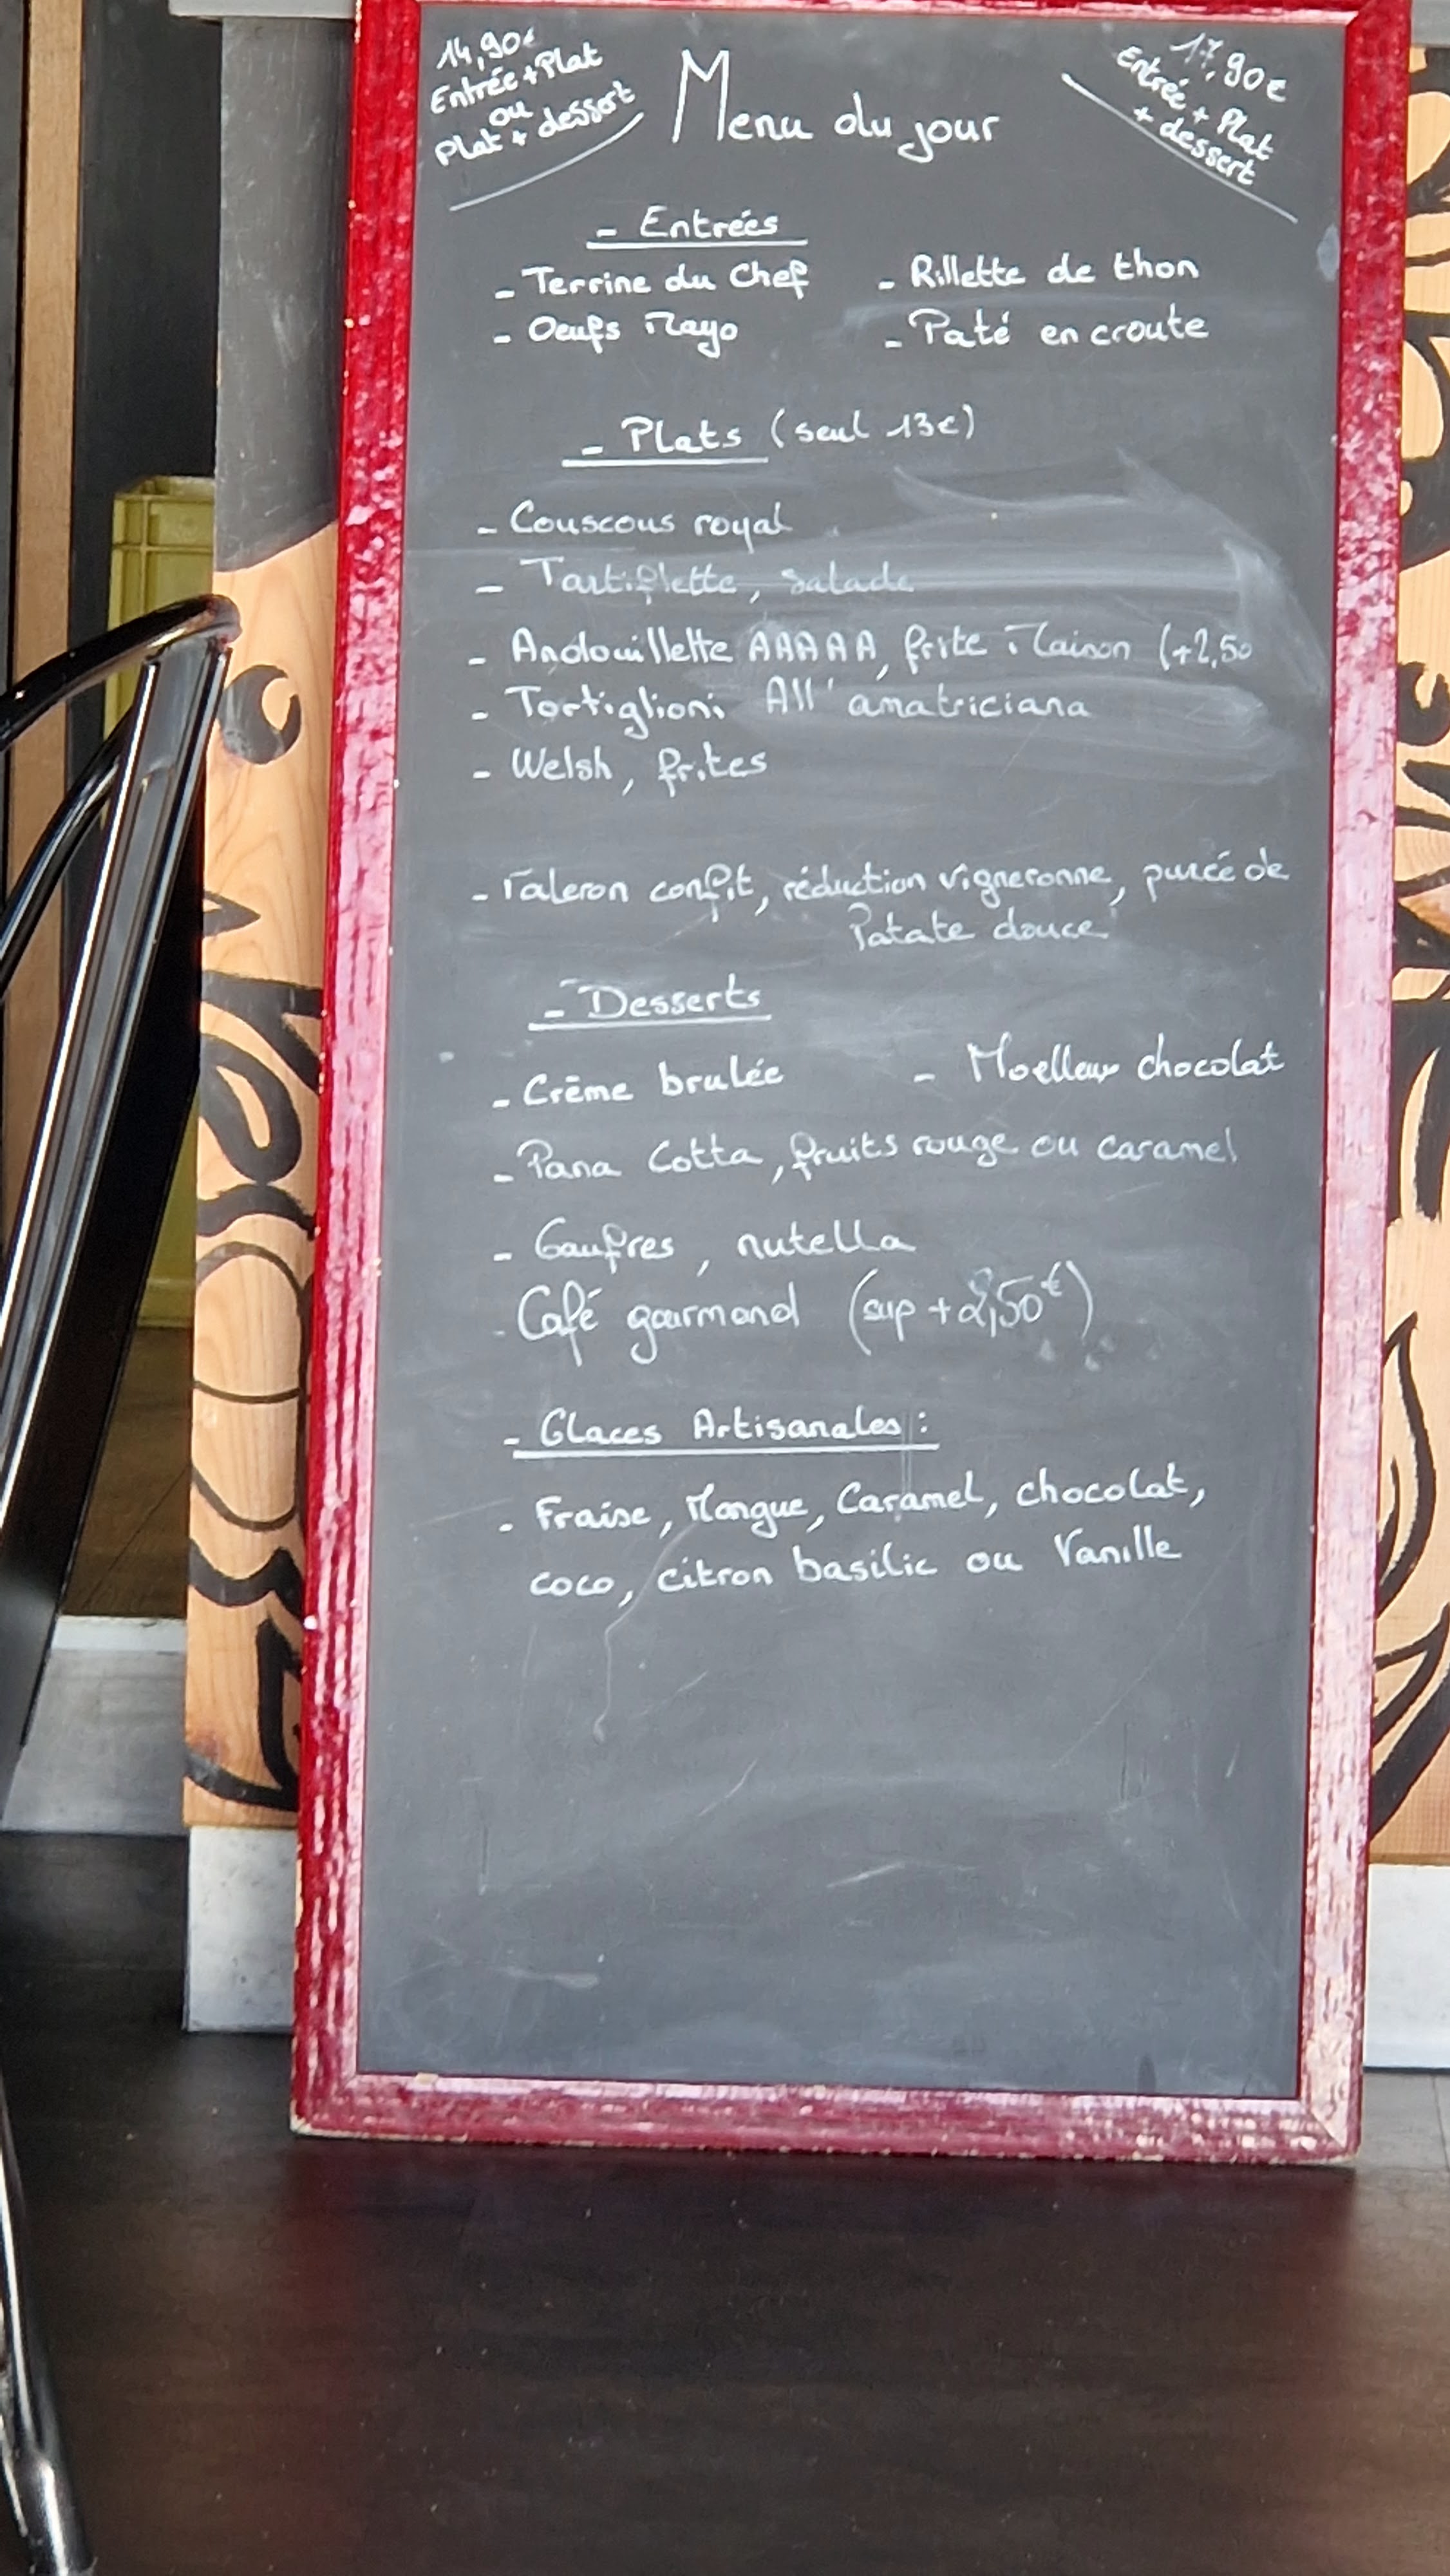 14,90€
Entrée + Plat
ou
Plat + dessert
Menu du jour
17,90€
Entrée + Plat
+ dessert
- Entrées
- Terrine du Chef - Rillette de thon
- Oeufs Mayo - Paté en croute
- Plats (seul 13€)
- Couscous royal
- Tartiflette, salade
- Andouillette AAAAA, frite Maison (+2,50
- Tortiglioni All'amatriciana
- Welsh, frites
- Paleron confit, réduction vigneronne, purée de
Patate douce
- Desserts
- Crème brulée - Moelleux chocolat
- Pana Cotta, fruits rouge ou caramel
- Gaufres, nutella
- Café gourmand (sup + 2,50€)
- Glaces Artisanales :
- Fraise, Mangue, Caramel, chocolat,
coco, citron basilic ou Vanille